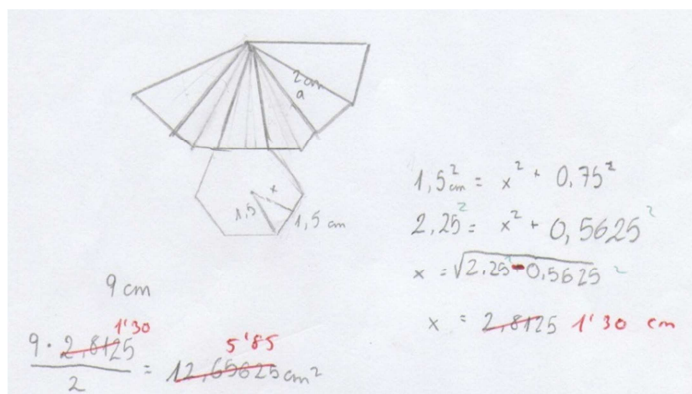 2cm
a
x
1,5
1,5 cm
1,5²cm = x² + 0,75²
2,25² = x² + 0,5625²
x = √2,25² - 0,5625²
x = 2,8125 1'30 cm
9cm
1'30
9 · 2,8125
2
=
5'85
12,65625cm²